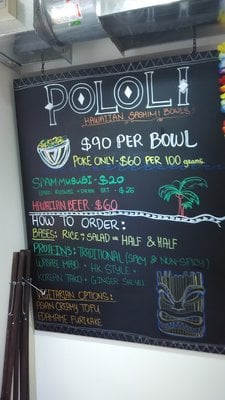 POLOLI
HAWAIIAN SASHIMI BOWLS
$90 PER BOWL
POKE ONLY - $60 PER 100 grams
SPAM MUSUBI - $20
HAWAIIAN BEER $60
HOW TO ORDER:
BASES: RICE, SALAD or HALF & HALF
PROTEINS: TRADITIONAL (SPICY & NON-SPICY)
WASABI MAYO · HK STYLE ·
KOREAN TAKO · GINGER SHOYU
VEGETARIAN OPTIONS:
ASIAN CREAMY TOFU
EDAMAME FURIKAKE